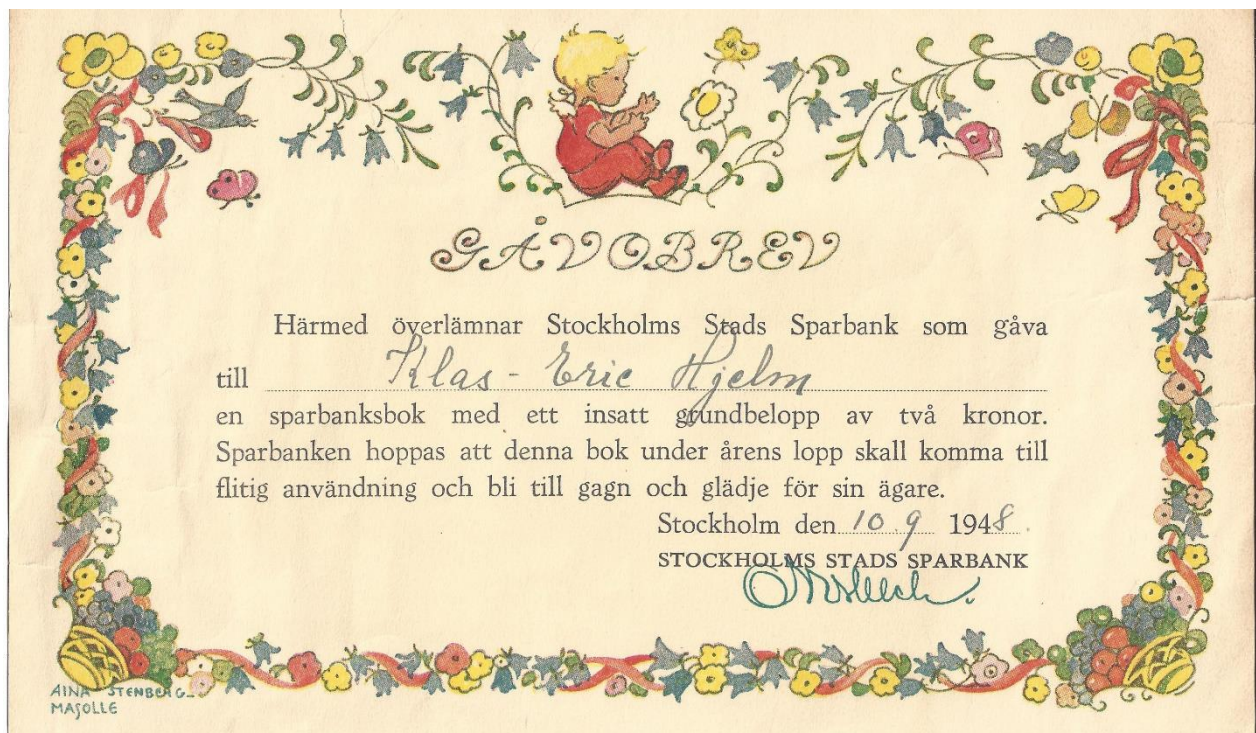 GÅVOBREV
Härmed överlämnar Stockholms Stads Sparbank som gåva
till Klas-Eric Hjelm
en sparbanksbok med ett insatt grundbelopp av två kronor.
Sparbanken hoppas att denna bok under årens lopp skall komma till
flitig användning och bli till gagn och glädje för sin ägare.
Stockholm den 10.9 1948.
STOCKHOLMS STADS SPARBANK
AINA STENBERG-
MASOLLE